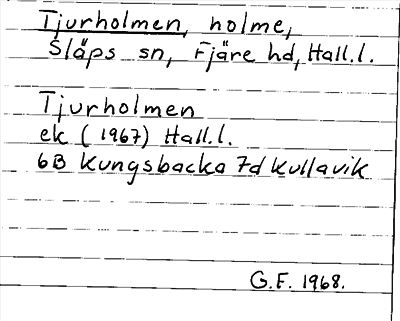 Tjurholmen, holme,
Släps sn, Fjäre hd, Hall.l.
Tjurholmen
ek (1967) Hall.l.
6B Kungsbacka 7d Kullavik
G.F. 1968.